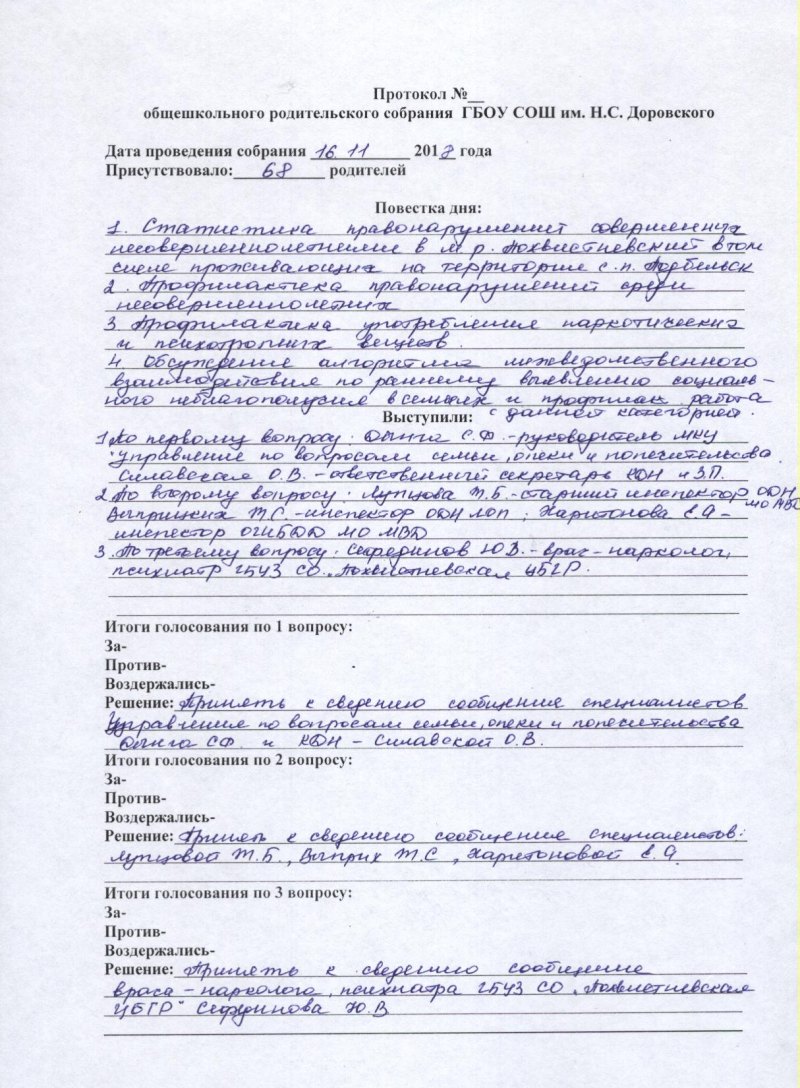 Протокол №__
общешкольного родительского собрания ГБОУ СОШ им. Н.С. Доровского
Дата проведения собрания 16.11 2018 года
Присутствовало: 68 родителей
Повестка дня:
1. Статистика правонарушений совершенных
несовершеннолетними в м.р. Похвистневский в том
числе проживающих на территории с.п. Подбельск
2. Профилактика правонарушений среди
несовершеннолетних
3. Профилактика употребления наркотических
и психотропных веществ.
4. Обсуждение алгоритма межведомственного
взаимодействия по раннему выявлению социаль-
ного неблагополучия в семьях и профилак работа
с данной категорией.
Выступили:
1. По первому вопросу: С.Ф. - руководитель МКУ
"Управление по вопросам семьи, опеки и попечительства
Силавская О.В. - ответственный секретарь КДН и ЗП.
2. По второму вопросу: Лупцова Т.Б. - старший инспектор ОДН
МО МВД
Т.С. - инспектор ОДН ЛОП; Харитонова Е.А -
инспектор ОГИБДД МО МВД
3. По третьему вопросу: Ю.В. - врач-нарколог,
психиатр ГБУЗ СО "Похвистневская ЦБГР.
Итоги голосования по 1 вопросу:
За-
Против-
Воздержались-
Решение: Принять к сведению сообщения специалистов
Управления по вопросам семьи, опеки и попечительства
СФ. и КДН - Силавской О.В.
Итоги голосования по 2 вопросу:
За-
Против-
Воздержались-
Решение: Принять к сведению сообщение специалистов:
Лупцовой Т.Б., Т.С, Харитоновой Е.А.
Итоги голосования по 3 вопросу:
За-
Против-
Воздержались-
Решение: Принять к сведению сообщение
врача-нарколога, психиатра ГБУЗ СО "Похвистневская
ЦБГР" Ю.В